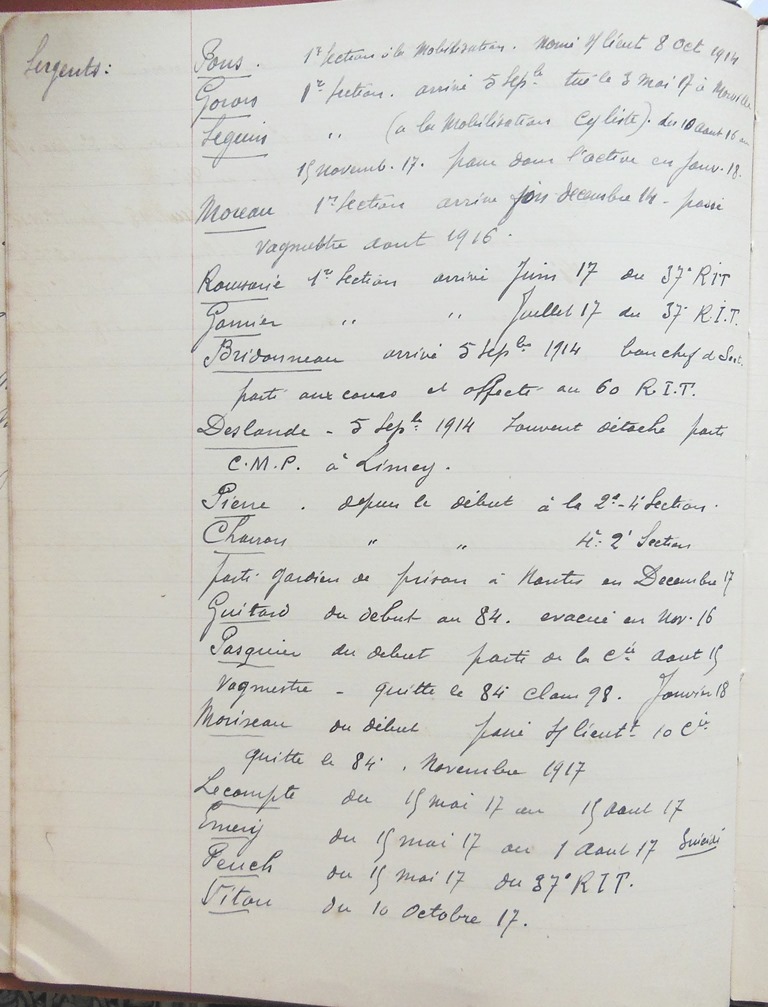 Sergents:
Pons. 1re Section à la Mobilisation. Nomé s/lieut 8 Oct 1914
1re Section. arrivé 5 Sepbre tué le 3 Mai 17 à
Seguin " (a la Mobilisation Cycliste). du 10 aout 16 au
15 Novemb. 17. passe dans l'active en Janv. 18.
Moreau 1re Section arrive fin décembre 14 - passé
Vaguemestre aout 1916.
1re Section arrivé Juin 17 du 37e RIT
Garnier " " Juillet 17 du 37e R.I.T.
Bridonneau arrivé 5 Sepbre 1914 bon chef d Sect.
parti aux cours et affecté au 60 R.I.T.
Deslande - 5 Sepbre 1914 souvent détaché parti
C.M.P. à Limey.
Pierre. depuis le début à la 2e - 4e Section.
Charon " " 4e - 2e Section
parti gardien de prison à Nantes en Decembre 17
Guitard du début au 84. evacué en Nov. 16
Pasquier du debut parti de la Cie aout 15
Vagmestre - quitte le 84e classe 98. Janvier 18
Moriseau du début passé s/lieutt 10 Cie
quitte le 84e. Novembre 1917
Lecompte du 15 mai 17 au 15 aout 17
Emery du 15 mai 17 au 1 Aout 17 Suicidé
Peuch du 15 mai 17 du 37e RIT.
Viton du 10 Octobre 17.